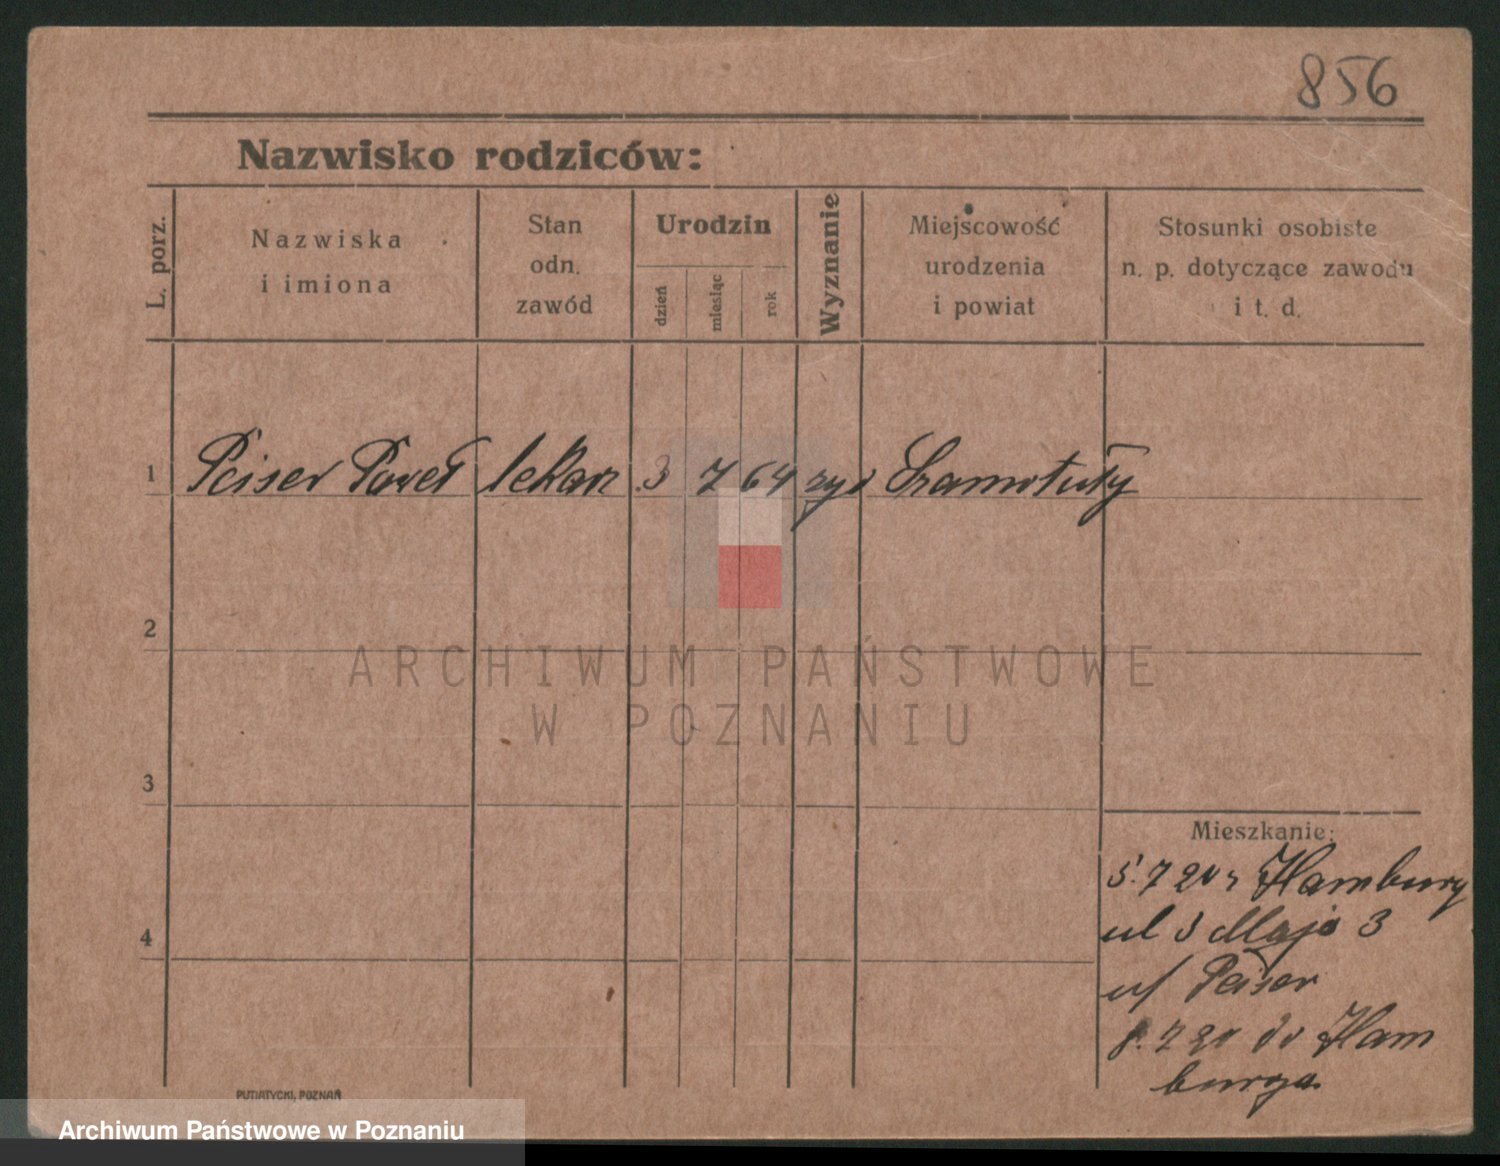 856
Nazwisko rodziców:
L. porz.
Nazwiska
i imiona
Stan
odn.
zawód
Urodzin
dzień
miesiąc
rok
Wyznanie
Miejscowość
urodzenia
i powiat
Stosunki osobiste
n. p. dotyczące zawodu
i t. d.
1 Peiser Paweł lekarz 3 7 64 żyd Szamotuły
2
ARCHIWUM PAŃSTWOWE
W POZNANIU
3
Mieszkanie:
5. 7 20 z Hamburg
ul 3 Maja 3
u/ Peiser
8. 7 20 do Ham
burga
4
PUTIATYCKI, POZNAŃ
Archiwum Państwowe w Poznaniu